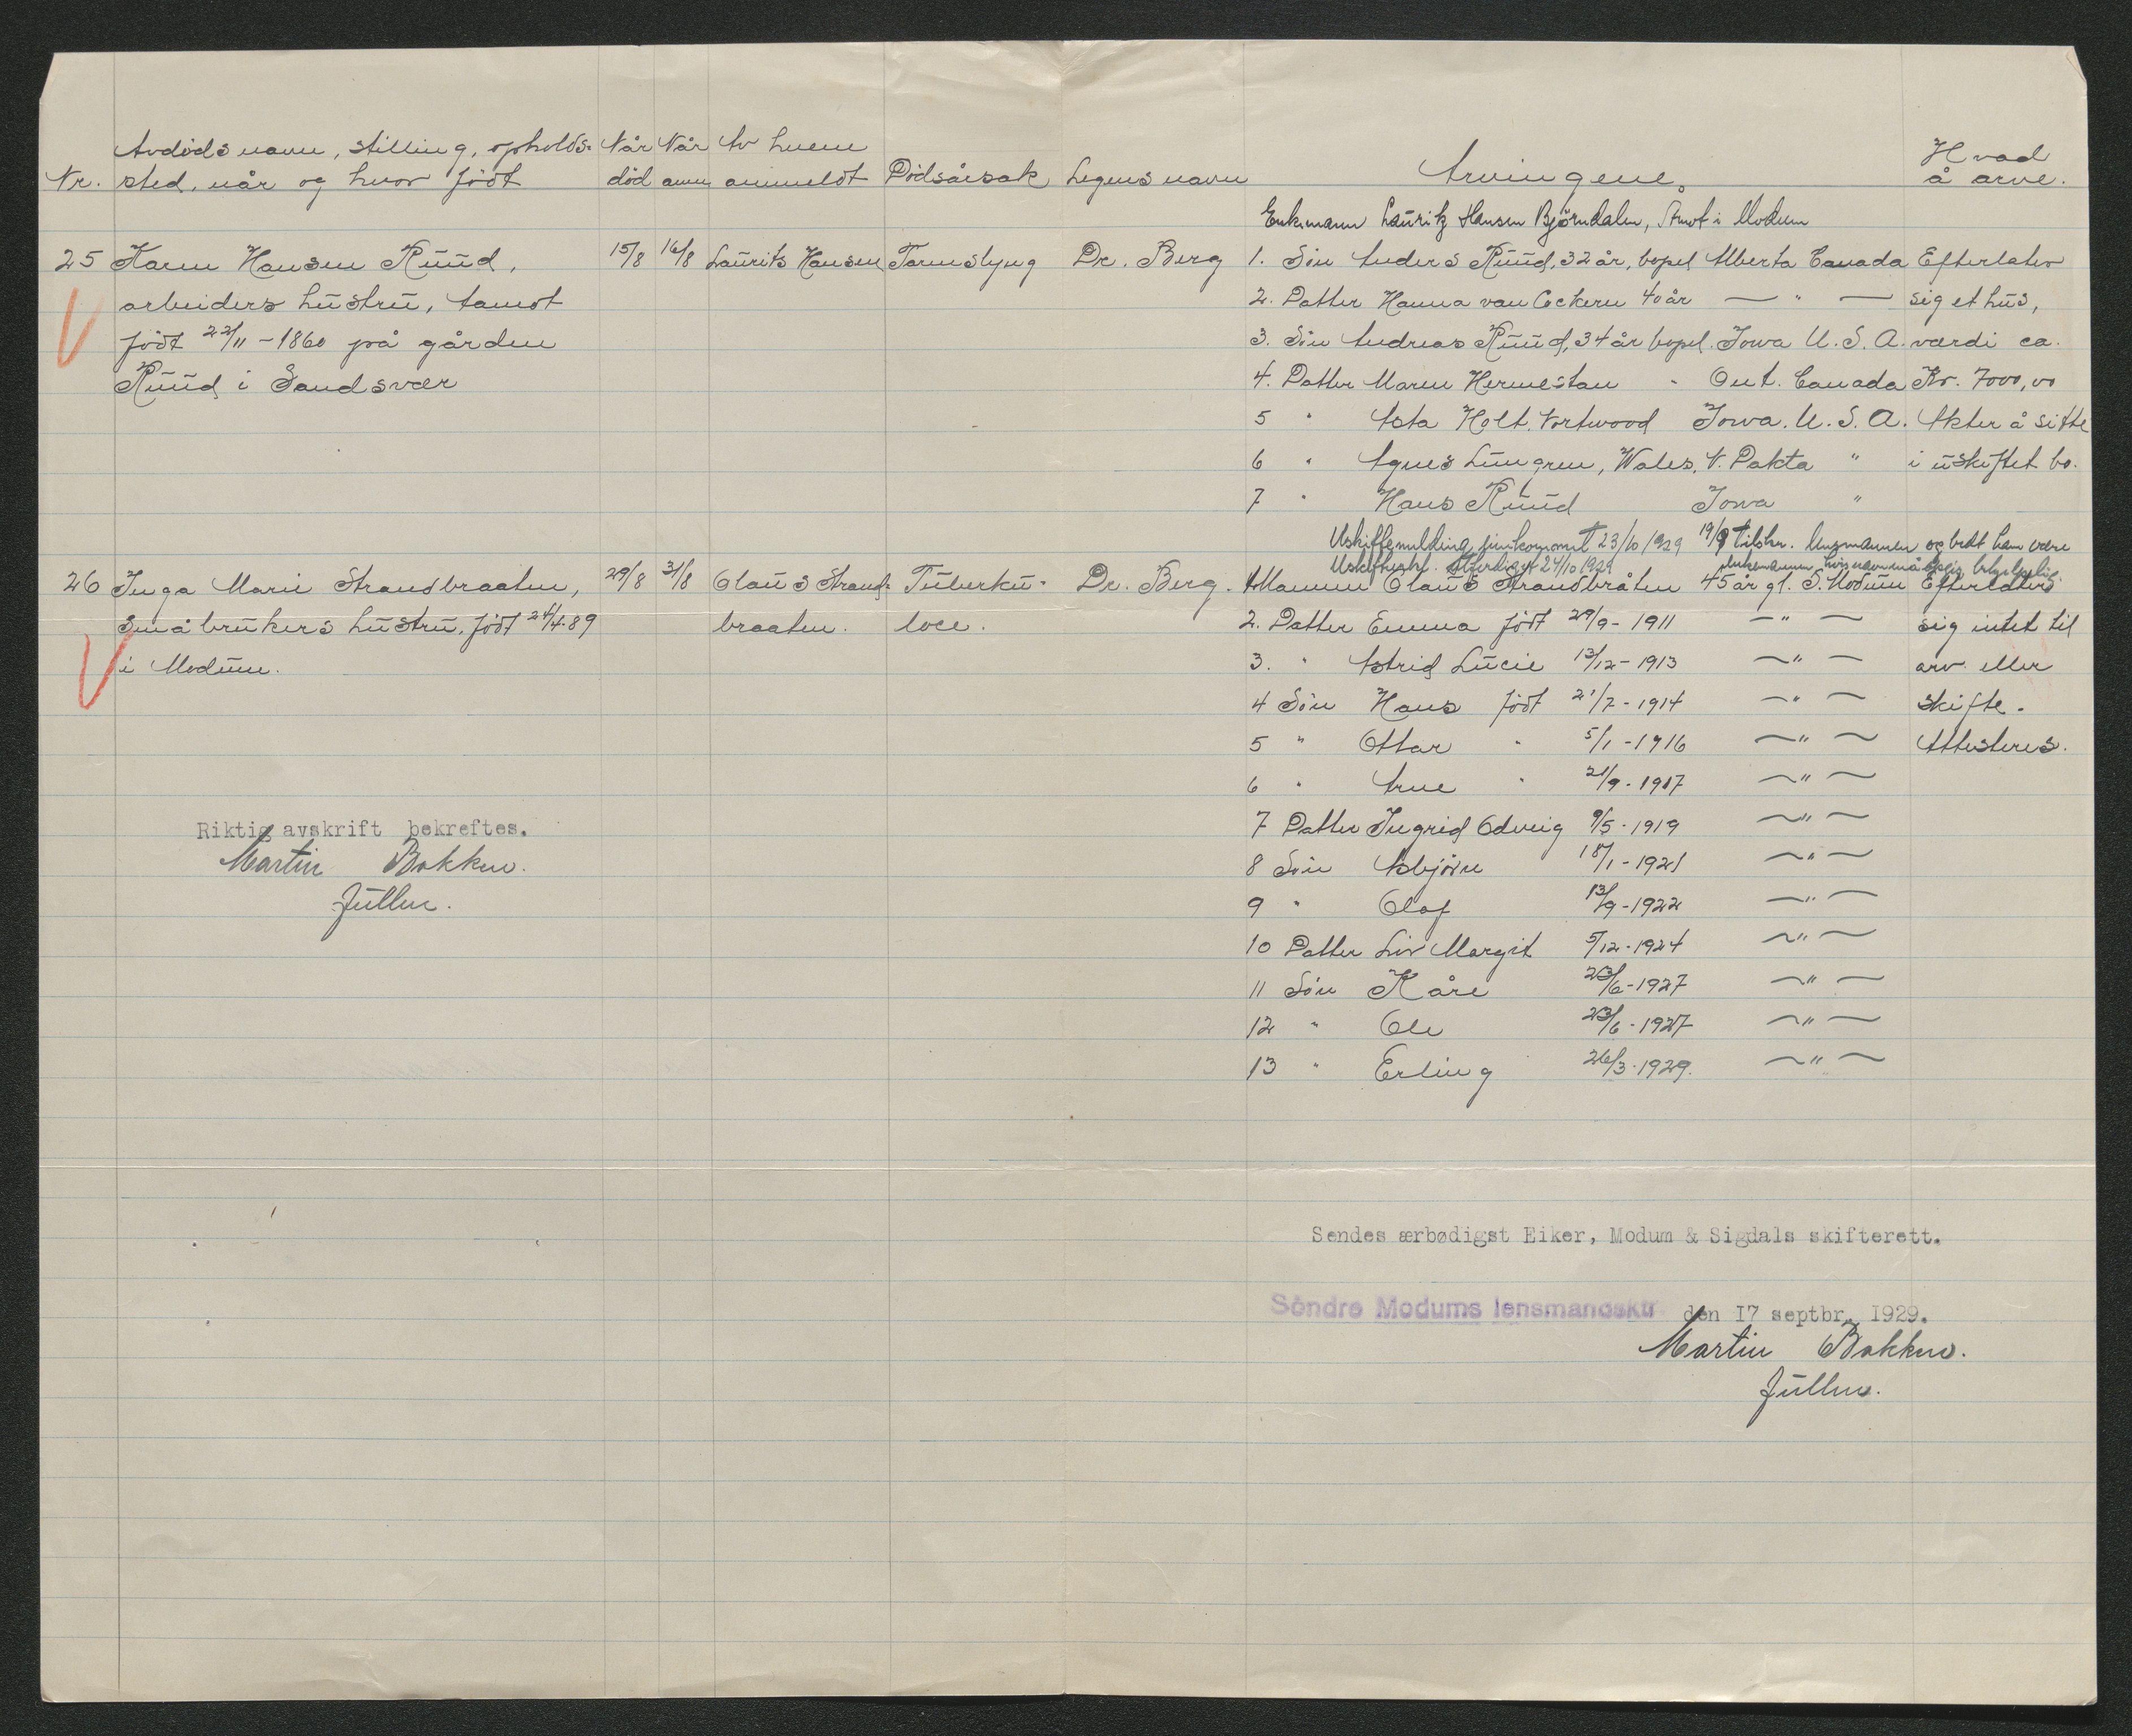 Avdøds navn, stilling, opholds- Når Når Av hvem Hvad
Nr. sted, når og hvor født død anm. anmeldt Dødsårsak Legens navn Arvingene. å arve.
Enkemann Lauritz Hansen Bjørndalen, Åmot i Modum
25 Karen Hansen Ruud, 15/8 16/8 Laurits Hansen Tarmslyng Dr. Berg 1. Søn Anders Ruud, 32 år, bopel Alberta Canada Efterlater
arbeiders hustru, Aamot 2. Datter Hanna van Cockern 40 år — " — sig et hus,
født 22/11 - 1860 på gården 3. Søn Andreas Ruud, 34 år bopel. Iowa U. S. A. værdi ca.
Ruud i Sandsvær 4. Datter Maren Hermestan - Ont. Canada Kr. 7000,00
5 " Asta Holt. Nortwood Iowa. U. S. A. Akter å sitte
6 " Agnes Lungren, Wales, N. Dakta " i uskiftet bo.
7 " Hans Ruud Iowa "
Uskiftemelding fremkommet 23/10 1929 19/9 tilskr. lensmannen og bedt ham være
Uskifteatt. 24/10 1929 enkemannen
26 Inga Marie Strandbraaten, 29/8 31/8 Olaus Strand- Tuberku- Dr. Berg. 1. Mannen Olaus Strandbråten 45 år gl. S. Modum Efterlater
småbrukers hustru, født 24/4-89 braaten. lose. 2. Datter Emma født 29/9 - 1911 — " — sig intet til
i Modum. 3. " Astrid Lucie 13/12 - 1913 — " — arv eller
4 Søn Hans født 21/7 - 1914 — " — skifte.
5 " Ottar " 5/1 - 1916 — " — Attesteres.
6 " Arne " 21/9 - 1917 — " —
7 Datter Ingrid Odveig 9/5 - 1919 — " —
8 Søn Asbjørn 18/1 - 1921 — " —
9 " Olaf 13/9 - 1922 — " —
10 Datter Liv Margit 5/12 - 1924 — " —
11 Søn Kåre 23/6 - 1927 — " —
12 " Ole 23/6 - 1927 — " —
13 " Erling 26/3 - 1929. — " —
Riktig avskrift bekreftes.
Martin Bakken.
fullm.
Sendes ærbødigst Eiker, Modum & Sigdals skifterett.
Søndre Modums lensmandsktr den 17 septbr. 1929.
Martin Bakken.
fullm.